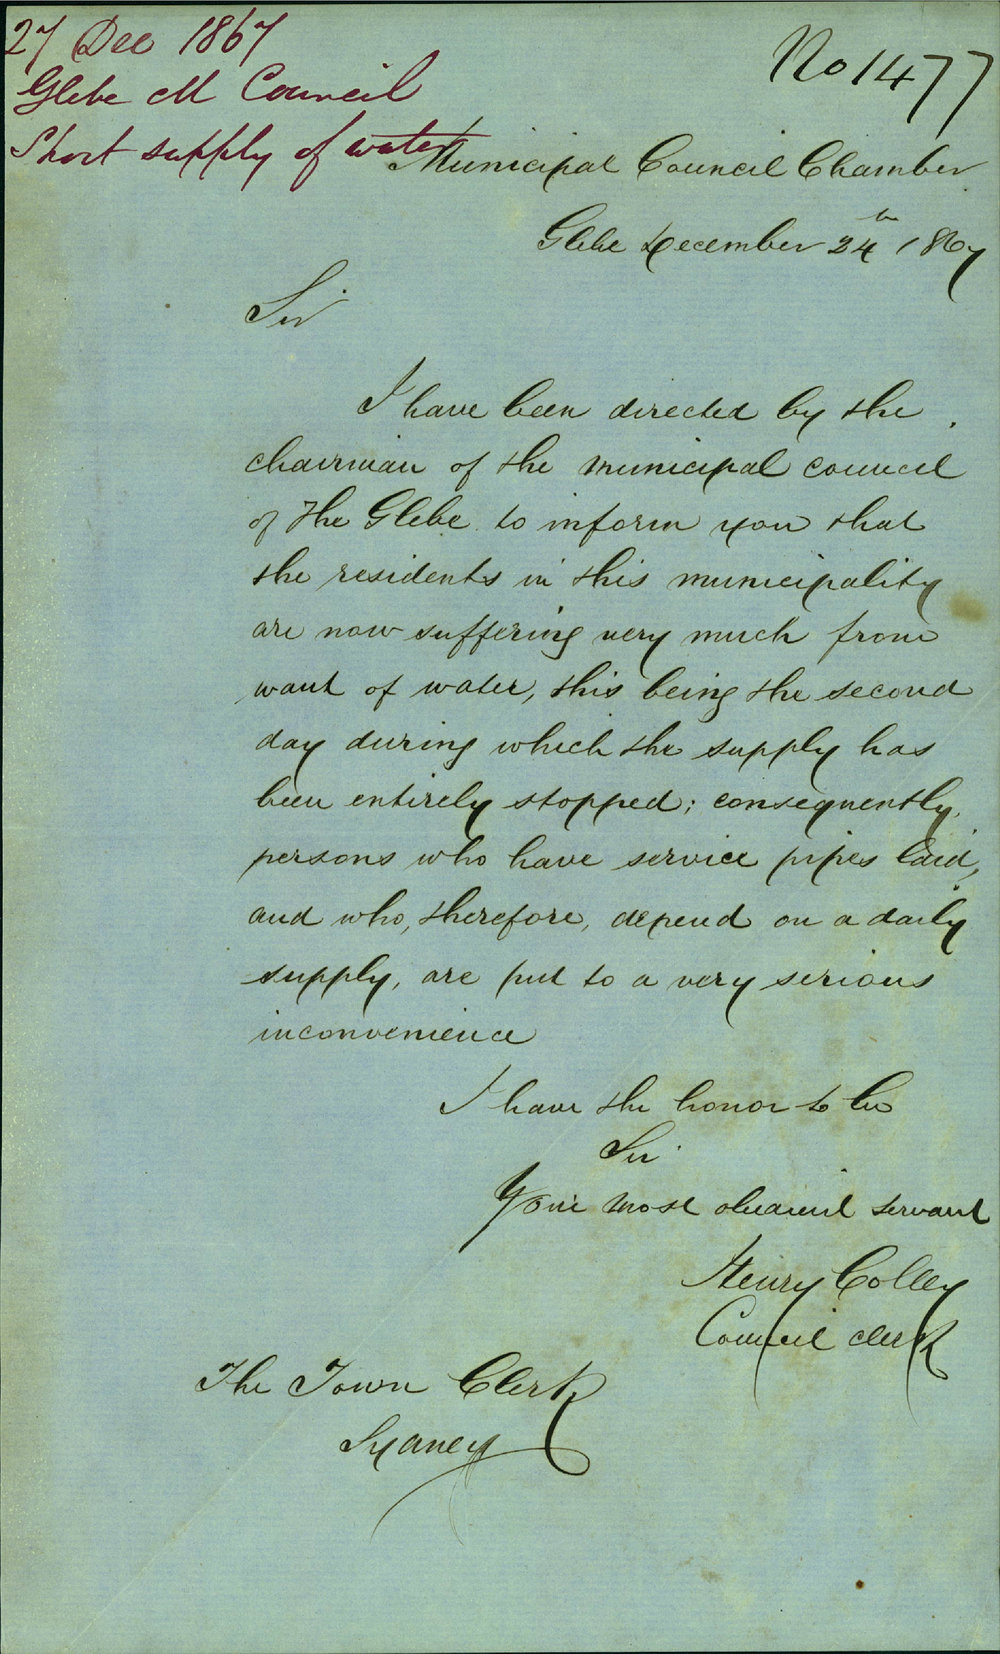 27 Dec 1867
Glebe M Council
Short supply of water
No 1477
Municipal Council Chamber
Glebe December 24th 1867
Sir
I have been directed by the
chairman of the municipal council
of The Glebe to inform you that
the residents in this municipality
are now suffering very much from
want of water, this being the second
day during which the supply has
been entirely stopped; consequently,
persons who have service pipes laid,
and who, therefore, depend on a daily
supply, are put to a very serious
inconvenience
I have the honor to be
Sir
Your most obedient servant
Henry Colley
Council clerk
The Town Clerk
Sydney